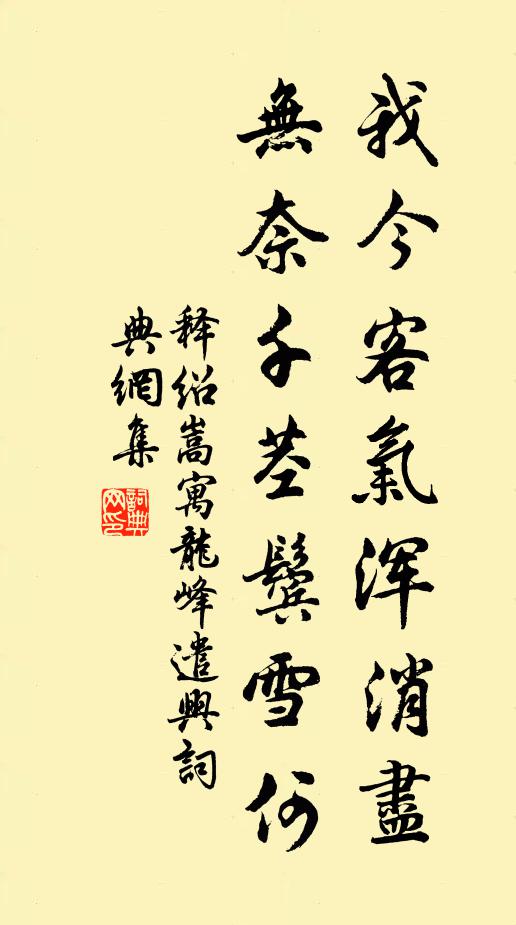 我今客氣渾消盡
無奈千莖鬢雪何
释紹嵩寓龍峰遣興詞
典網集
詞典
网印